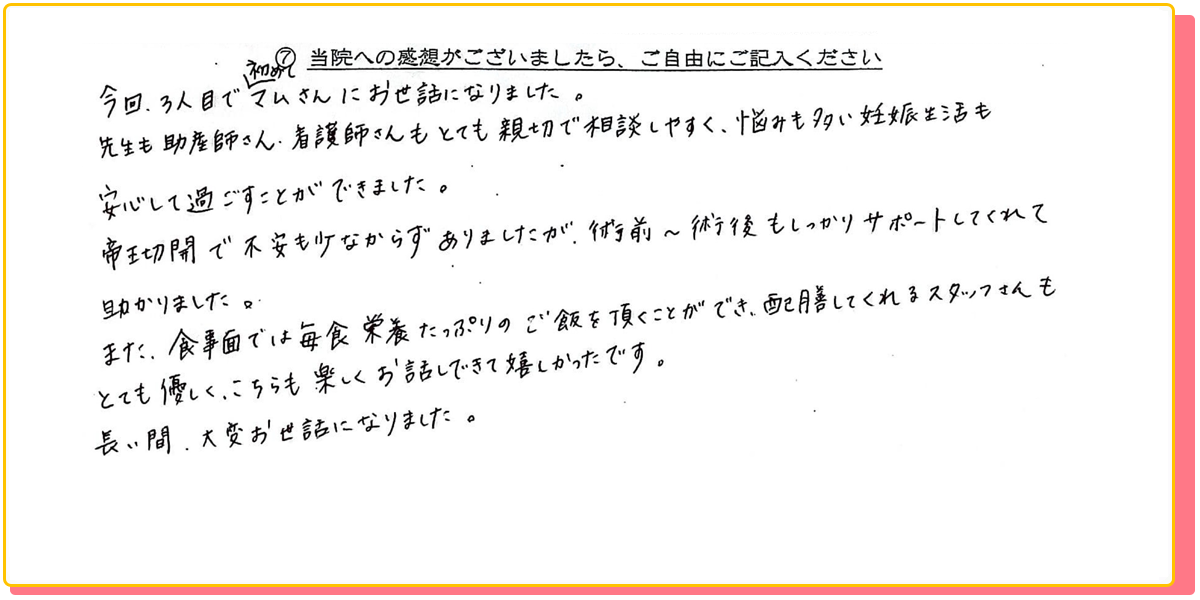 ⑦ 当院への感想がございましたら、ご自由にご記入ください
今回、3人目で初めてマムさんにお世話になりました。
先生も助産師さん、看護師さんもとても親切で相談しやすく、悩みも多い妊娠生活も
安心して過ごすことができました。
帝王切開で不安も少なからずありましたが、術前～術後もしっかりサポートしてくれて
助かりました。
また、食事面では毎食栄養たっぷりのご飯を頂くことができ、配膳してくれるスタッフさんも
とても優しく、こちらも楽しくお話しできて嬉しかったです。
長い間、大変お世話になりました。